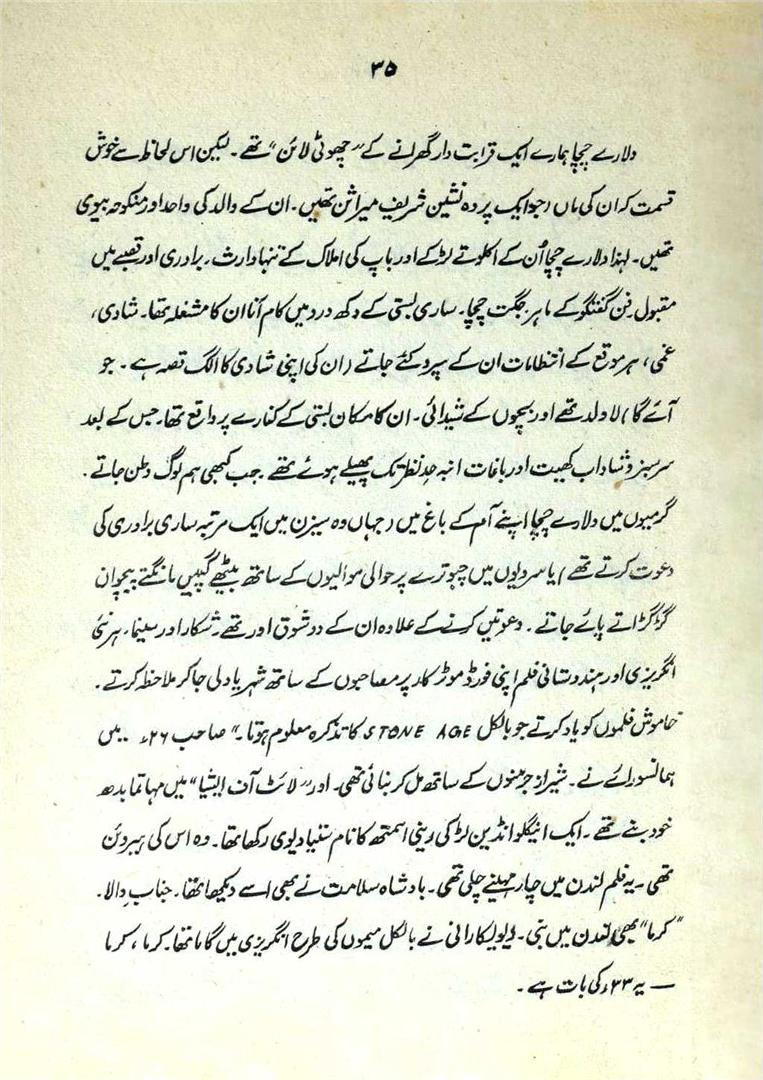 ۳۵
دلارے چچا ہمارے ایک قرابت دار گھرانے کے "چھوٹی لائن" تھے۔ لیکن اس لحاظ سے خوش
قسمت کہ ان کی ماں (جو ایک پردہ نشین شریف میراثن تھیں۔ ان کے والد کی واحد اور منکوحہ بیوی
تھیں۔ لہذا دلارے چچا اُن کے اکلوتے لڑکے اور باپ کی املاک کے تنہا وارث۔ برادری اور قصبے میں
مقبول۔ فن گفتگو کے ماہر جگت چچا۔ ساری بستی کے دکھ درد میں کام آنا ان کا مشغلہ تھا۔ شادی،
غمی، ہر موقع کے انتظامات ان کے سپرد کئے جاتے (ان کی اپنی شادی کا الگ قصہ ہے۔ جو
آئے گا) لاولد تھے اور بچوں کے شیدائی۔ ان کا مکان بستی کے کنارے پر واقع تھا۔ جس کے بعد
سرسبز و شاداب کھیت اور باغات انبہ حدِ نظر تک پھیلے ہوئے تھے۔ جب کبھی ہم لوگ وطن جاتے۔
گرمیوں میں دلارے چچا اپنے آم کے باغ میں (جہاں وہ سیزن میں ایک مرتبہ ساری برادری کی
دعوت کرتے تھے) یا سردیوں میں چبوترے پر حوالی موالیوں کے ساتھ بیٹھے گپیں ہانکتے پیچوان
گڑگڑاتے پائے جاتے۔ دعوتیں کرنے کے علاوہ ان کے دو شوق اور تھے۔ شکار اور سینما۔ ہر نئی
انگریزی اور ہندوستانی فلم اپنی فورڈ موٹر کار پر مصاحبوں کے ساتھ شہر یا دلی جا کر ملاحظہ کرتے۔
خاموش فلموں کو یاد کرتے جو بالکل STONE AGE کا تذکرہ معلوم ہوتا۔ "صاحب ۲۶ء میں
ہمانسو رائے نے۔ شیراز جرمنوں کے ساتھ مل کر بنائی تھی۔ اور "لائٹ آف ایشیا" میں مہاتما بدھ
خود بنے تھے۔ ایک اینگلو انڈین لڑکی رینی اسمتھ کا نام سیتا دیوی رکھا تھا۔ وہ اس کی ہیروئن
تھی۔ یہ فلم لندن میں چار مہینے چلی تھی۔ بادشاہ سلامت نے بھی اسے دیکھا تھا۔ جناب والا۔
"کرما" بھی لندن میں بنی۔ دیویکا رانی نے بالکل میموں کی طرح انگریزی میں گایا تھا۔ کرما، کرما
— یہ ۳۳ء کی بات ہے۔